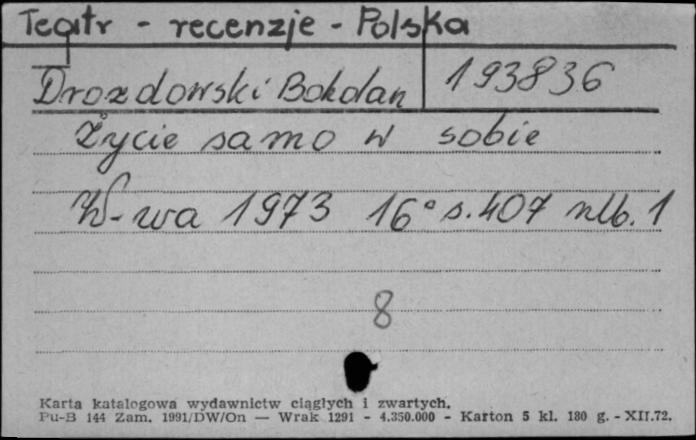 Teatr - recenzje - Polska
Drozdowski Bohdan 193836
Życie samo w sobie
W-wa 1973 16° s. 407 nlb. 1
8
Karta katalogowa wydawnictw ciągłych i zwartych.
Pu-B 144 Zam. 1991/DW/On — Wrak 1291 - 4.350.000 - Karton 5 kl. 180 g. - XII.72.